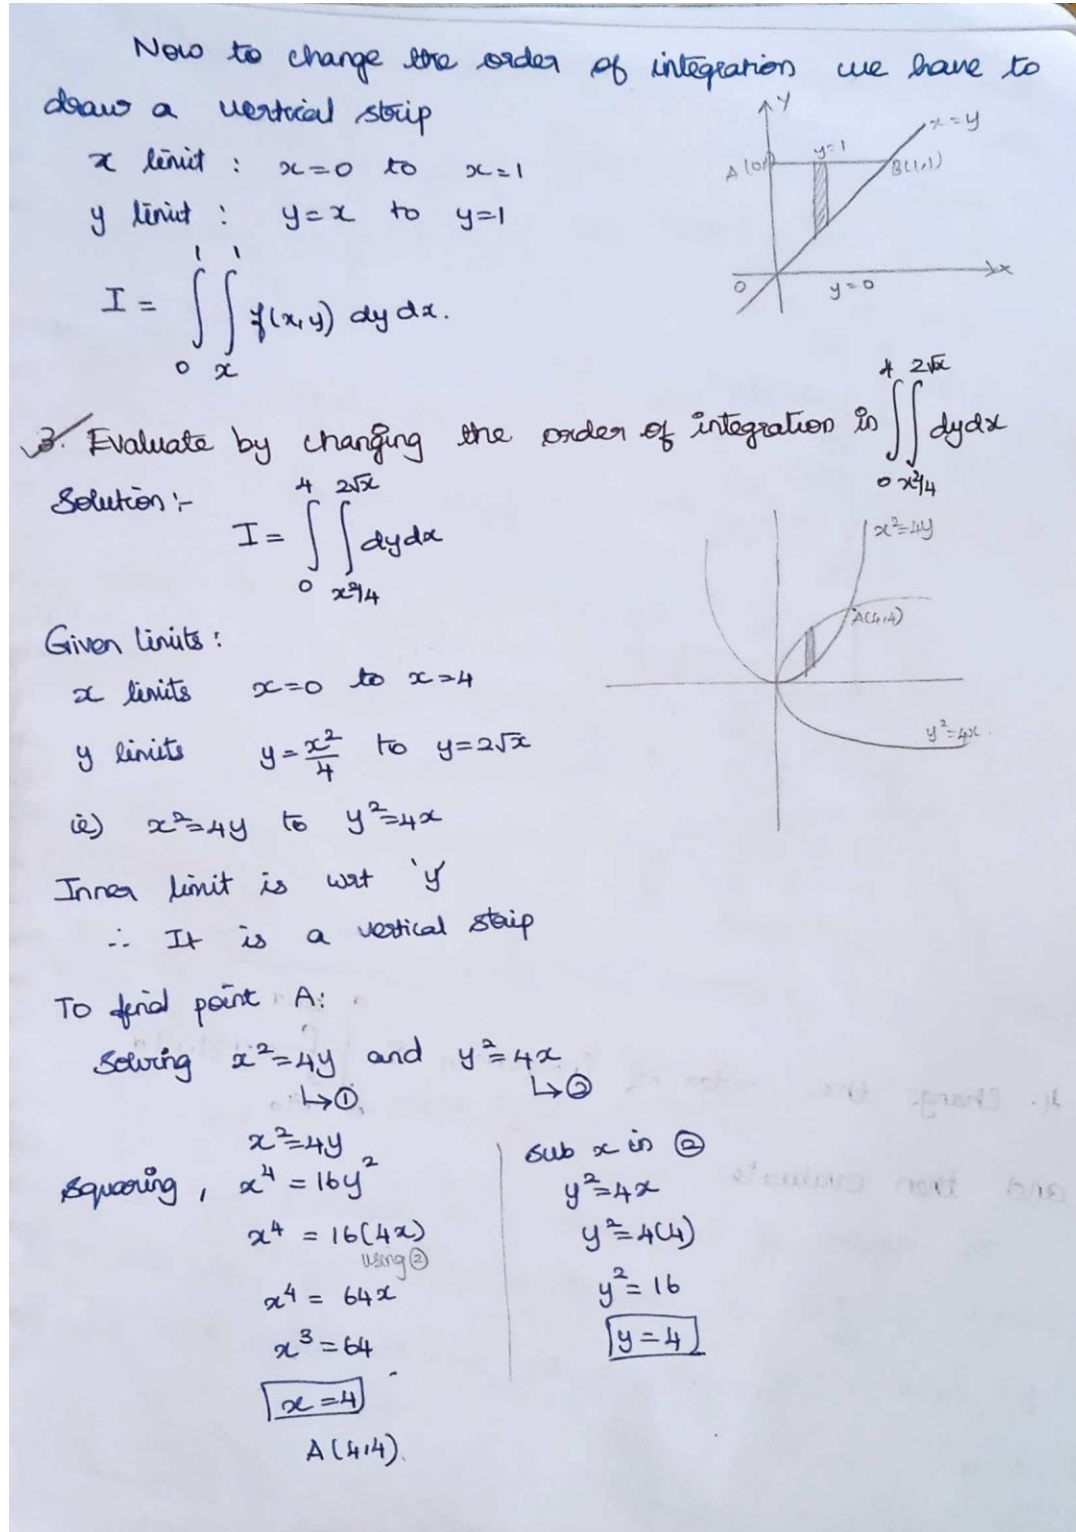 Now to change the order of integration we have to
draw a vertical strip
x limit : x=0 to x=1
y limit : y=x to y=1
I = ∫₀¹ ∫ₓ¹ f(x,y) dy dx.
Y
x=y
y=1
A(0,
B(1,1)
x
0
y=0
3. Evaluate by changing the order of integration in ∫₀⁴ ∫_{x²/4}^{2√x} dydx
Solution :-
I = ∫₀⁴ ∫_{x²/4}^{2√x} dydx
x²=4y
A(4,4)
y²=4x
Given limits :
x limits x=0 to x=4
y limits y = x²/4 to y=2√x
ie) x²=4y to y²=4x
Inner limit is wrt 'y'
∴ It is a vertical strip
To find point A:
Solving x²=4y and y²=4x
↳① ↳②
x²=4y
Squaring, x⁴ = 16y²
x⁴ = 16(4x)
using②
x⁴ = 64x
x³ = 64
x=4
A(4,4).
Sub x in ②
y²=4x
y²=4(4)
y²=16
y=4